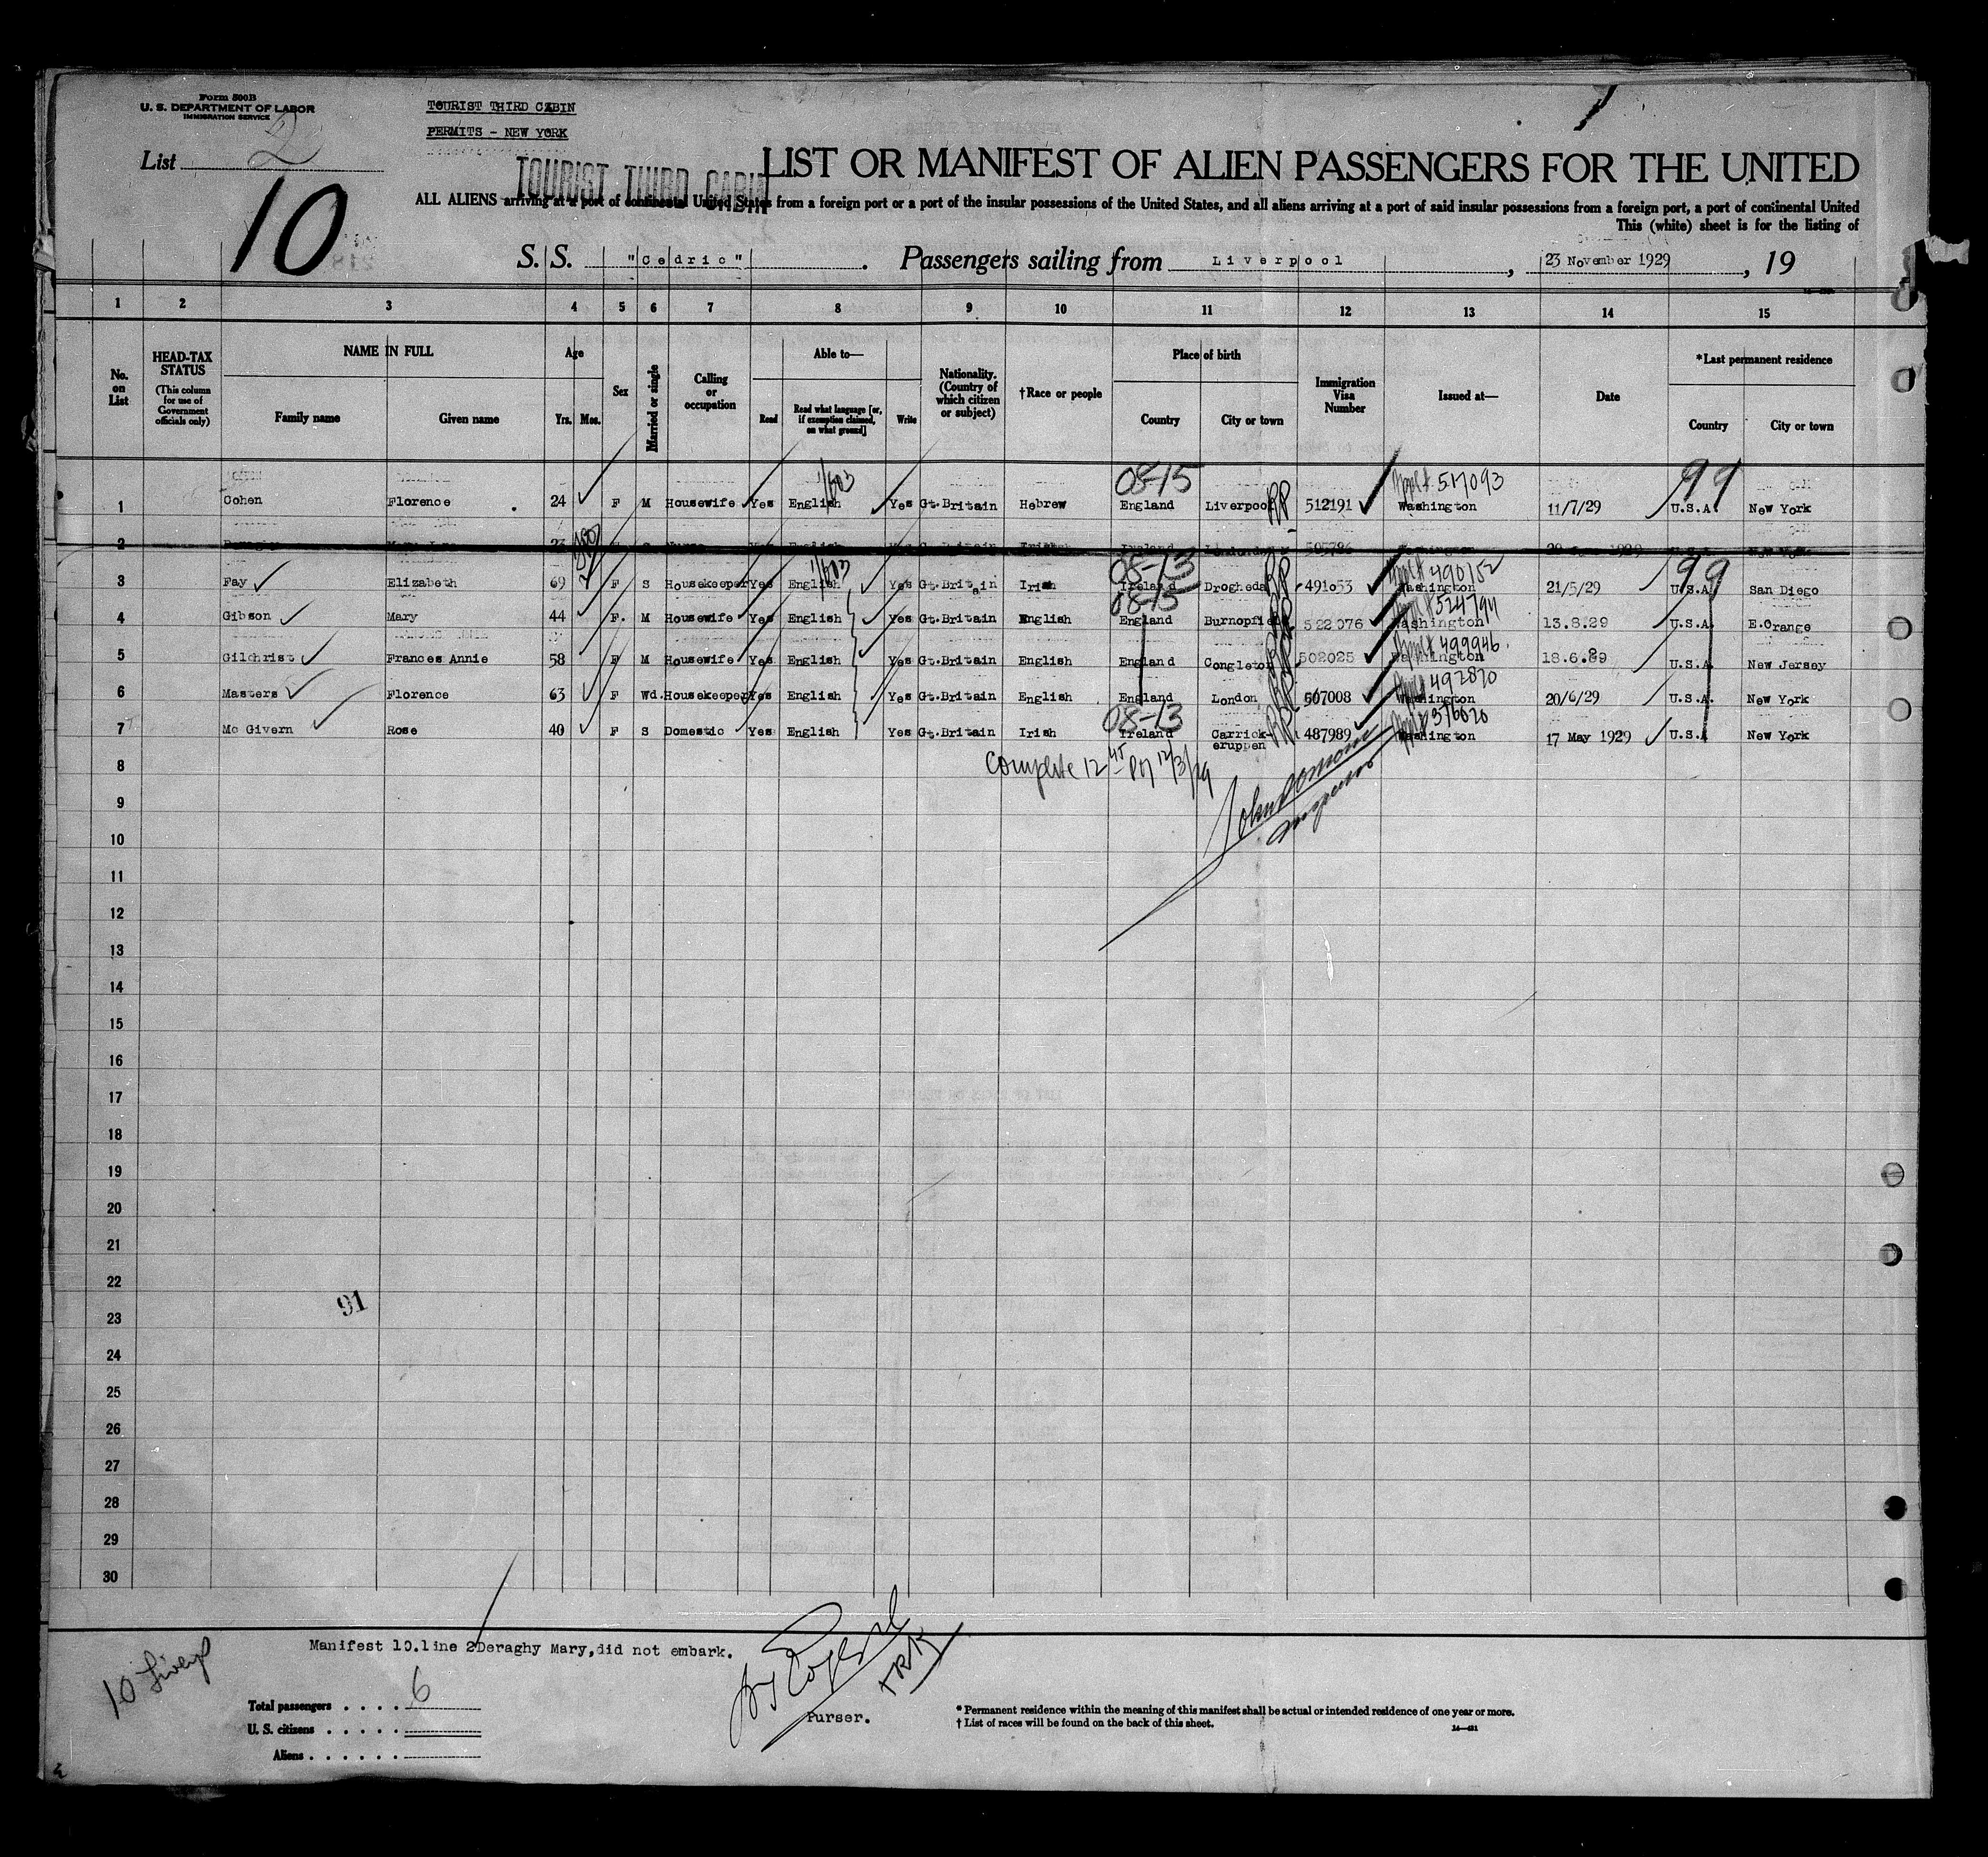 Form 500B
U. S. DEPARTMENT OF LABOR
IMMIGRATION SERVICE
TOURIST THIRD CABIN
PERMITS - NEW YORK
List 2
10
TOURIST THIRD CABIN
LIST OR MANIFEST OF ALIEN PASSENGERS FOR THE UNITED
ALL ALIENS arriving at a port of continental United States from a foreign port or a port of the insular possessions of the United States, and all aliens arriving at a port of said insular possessions from a foreign port, a port of continental United
This (white) sheet is for the listing of
S. S. "Cedric" . Passengers sailing from Liverpool , 23 November 1929 , 19
1 2 3 4 5 6 7 8 9 10 11 12 13 14 15
No. on List
HEAD-TAX STATUS (This column for use of Government officials only)
NAME IN FULL
Family name Given name
Age
Yrs. Mos.
Sex
Married or single
Calling or occupation
Able to—
Read
Read what language [or, if exemption claimed, on what ground]
Write
Nationality. (Country of which citizen or subject)
†Race or people
Place of birth
Country City or town
Immigration Visa Number
Issued at—
Date
*Last permanent residence
Country City or town
08-15 Appl# 517093 99
1 Cohen Florence 24 F M Housewife Yes English Yes Gt.Britain Hebrew England Liverpool 512191 Washington 11/7/29 U.S.A. New York
2 23 Nurse Yes English Irish 505786 Washington 1929 U.S.A. New York
08-13 Appl# 490152 99
3 Fay Elizabeth 69 F S Housekeeper Yes English Yes Gt.Britain Irish Ireland Drogheda 491053 Washington 21/5/29 U.S.A. San Diego
08-15 Appl# 524794
4 Gibson Mary 44 F. M Housewife Yes English Yes Gt.Britain English England Burnopfield 522076 Washington 13.8.29 U.S.A. E.Orange
Appl# 499946
5 Gilchrist Frances Annie 58 F M Housewife Yes English Yes Gt.Britain English England Congleton 502025 Washington 18.6.29 U.S.A. New Jersey
Appl# 492870
6 Masters Florence 63 F Wd. Housekeeper Yes English Yes Gt.Britain English England London 507008 Washington 20/6/29 U.S.A. New York
08-13
7 Mc Givern Rose 40 F S Domestic Yes English Yes Gt.Britain Irish Ireland Carrick-eruppen 487989 Washington 17 May 1929 U.S.A New York
8 Complete 12 45 PM 12/3/29
9
10 Inspector
11
12
13
14
15
16
17
18
19
20
21
22
91
23
24
25
26
27
28
29
30
Manifest 10.line 2 Deraghy Mary,did not embark.
10 Liverpl
Total passengers . . . . 6
Purser.
U. S. citizens . . . . .
Aliens . . . . . .
* Permanent residence within the meaning of this manifest shall be actual or intended residence of one year or more.
† List of races will be found on the back of this sheet.
14—481